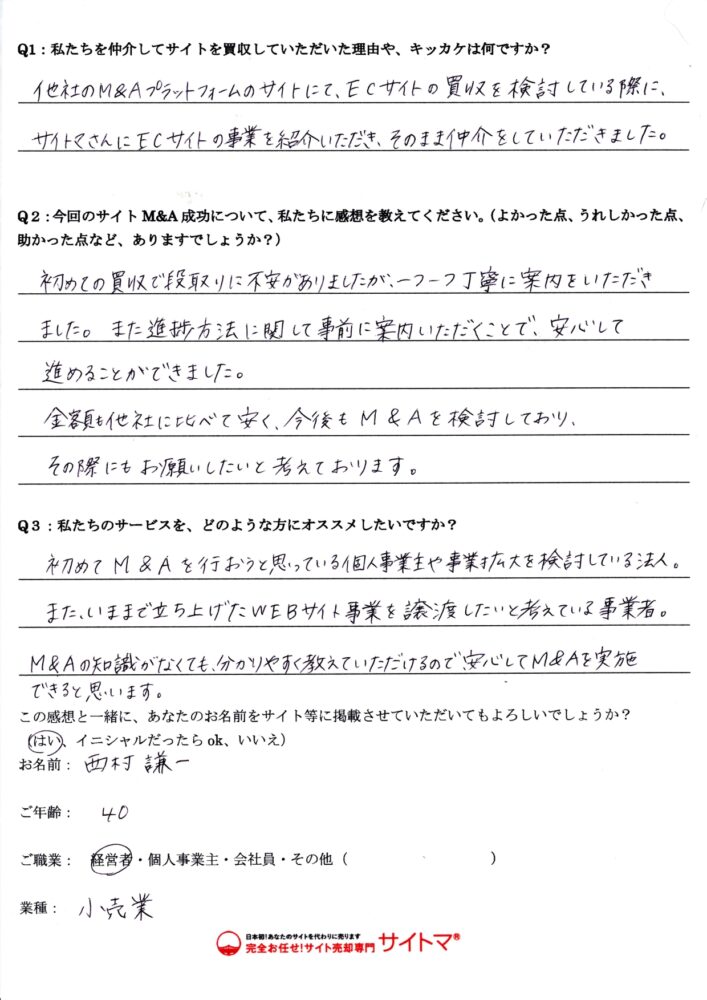 Q1：私たちを仲介してサイトを買収していただいた理由や、キッカケは何ですか？
他社のM&Aプラットフォームのサイトにて、ECサイトの買収を検討している際に、
サイトマさんにECサイトの事業を紹介いただき、そのまま仲介をしていただきました。
Q2：今回のサイトM&A成功について、私たちに感想を教えてください。（よかった点、うれしかった点、
助かった点など、ありますでしょうか？）
初めての買収で段取りに不安がありましたが、一つ一つ丁寧に案内をいただき
ました。また進捗方法に関して事前に案内いただくことで、安心して
進めることができました。
金額も他社に比べて安く、今後もM&Aを検討しており、
その際にもお願いしたいと考えております。
Q3：私たちのサービスを、どのような方にオススメしたいですか？
初めてM&Aを行おうと思っている個人事業主や事業拡大を検討している法人。
また、いままで立ち上げたWEBサイト事業を譲渡したいと考えている事業者。
M&Aの知識がなくても、分かりやすく教えていただけるので、安心してM&Aを実施
できると思います。
この感想と一緒に、あなたのお名前をサイト等に掲載させていただいてもよろしいでしょうか？
（はい、イニシャルだったらok、いいえ）
お名前： 西村 謙一
ご年齢： 40
ご職業： 経営者・個人事業主・会社員・その他（ ）
業種： 小売業
日本初！あなたのサイトを代わりに売ります
完全お任せ！サイト売却専門 サイトマ®